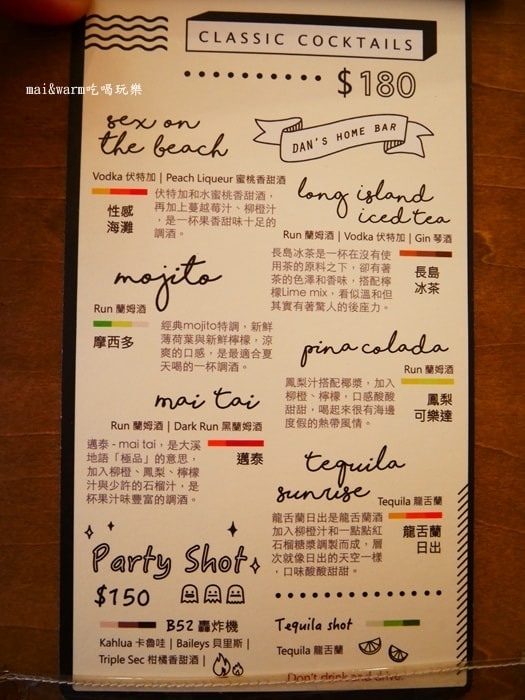 CLASSIC COCKTAILS
$180
mai&warm吃喝玩樂
DAN'S HOME BAR
sex on
the beach
Vodka 伏特加 | Peach Liqueur 蜜桃香甜酒
性感
海灘
伏特加和水蜜桃香甜酒，
再加上蔓越莓汁、柳橙汁
，是一杯果香甜味十足的
調酒。
long island
iced tea
Run 蘭姆酒 | Vodka 伏特加 | Gin 琴酒
長島冰茶是一杯在沒有使
用茶的原料之下，卻有著
茶的色澤和香味，搭配檸
檬Lime mix，看似溫和但
其實有著驚人的後座力。
長島
冰茶
mojito
Run 蘭姆酒
摩西多
經典mojito特調，新鮮
薄荷葉與新鮮檸檬，涼
爽的口感，是最適合夏
天喝的一杯調酒。
pina colada
Run 蘭姆酒
鳳梨汁搭配椰漿，加入
柳橙、檸檬，口感酸酸
甜甜，喝起來很有海邊
度假的熱帶風情。
鳳梨
可樂達
mai tai
Run 蘭姆酒 | Dark Run 黑蘭姆酒
邁泰 - mai tai，是大溪
地語「極品」的意思，
加入柳橙、鳳梨、檸檬
汁與少許的石榴汁，是
一杯果汁味豐富的調酒。
邁泰
tequila
sunrise
Tequila 龍舌蘭
龍舌蘭日出是龍舌蘭酒
加入柳橙汁和一點點紅
石榴糖漿調製而成，層
次就像日出的天空一樣
，口味酸酸甜甜。
龍舌蘭
日出
Party Shot
$150
B52 轟炸機
Kahlua 卡魯哇 | Baileys 貝里斯 |
Triple Sec 柑橘香甜酒 |
Tequila shot
Tequila 龍舌蘭
Don't drink and drive.